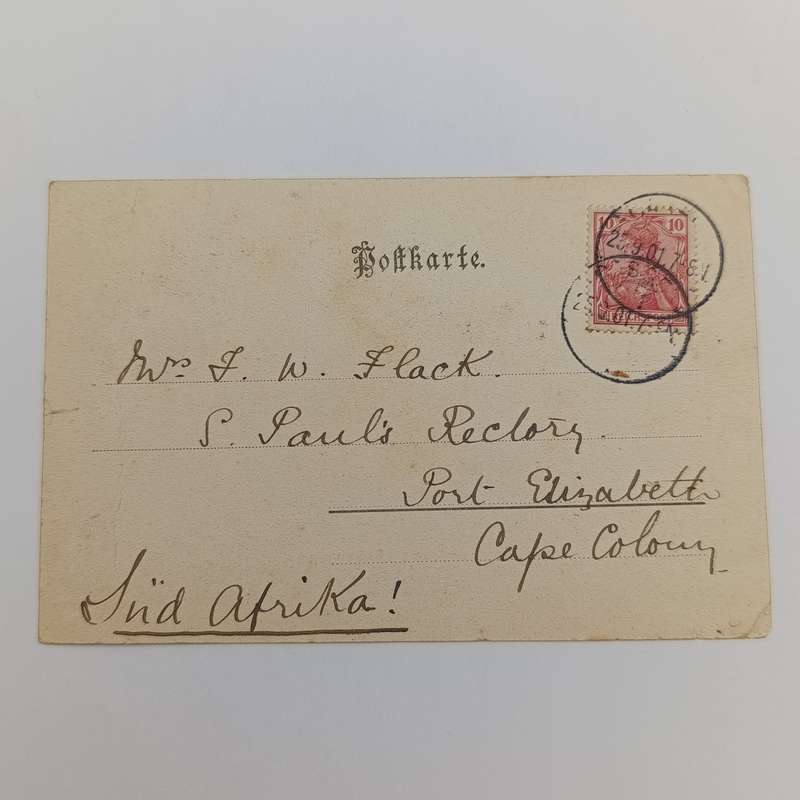 Postkarte.
10 10
25.9.01.7-8.V.
Mrs F. W. Flack.
S. Paul's Rectory.
Port Elizabeth
Cape Colony
Süd Afrika!